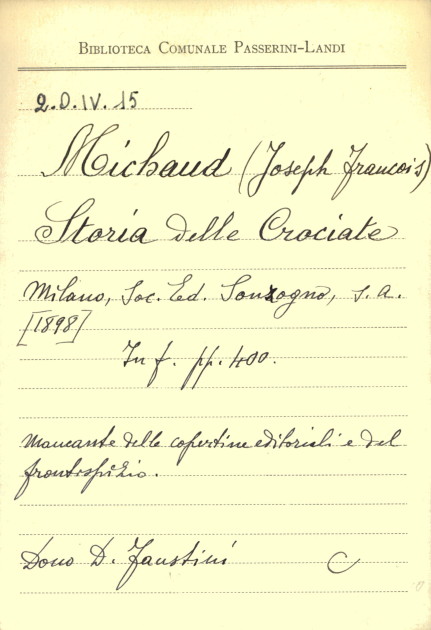 BIBLIOTECA COMUNALE PASSERINI-LANDI
2.O.IV.15
Michaud (Joseph Francois)
Storia delle Crociate
Milano, Soc. Ed. Sonzogno, s.a.
[1898]
In f. pp. 400.
Mancante delle copertine editoriali e del
frontespizio.
Dono D. Faustini C